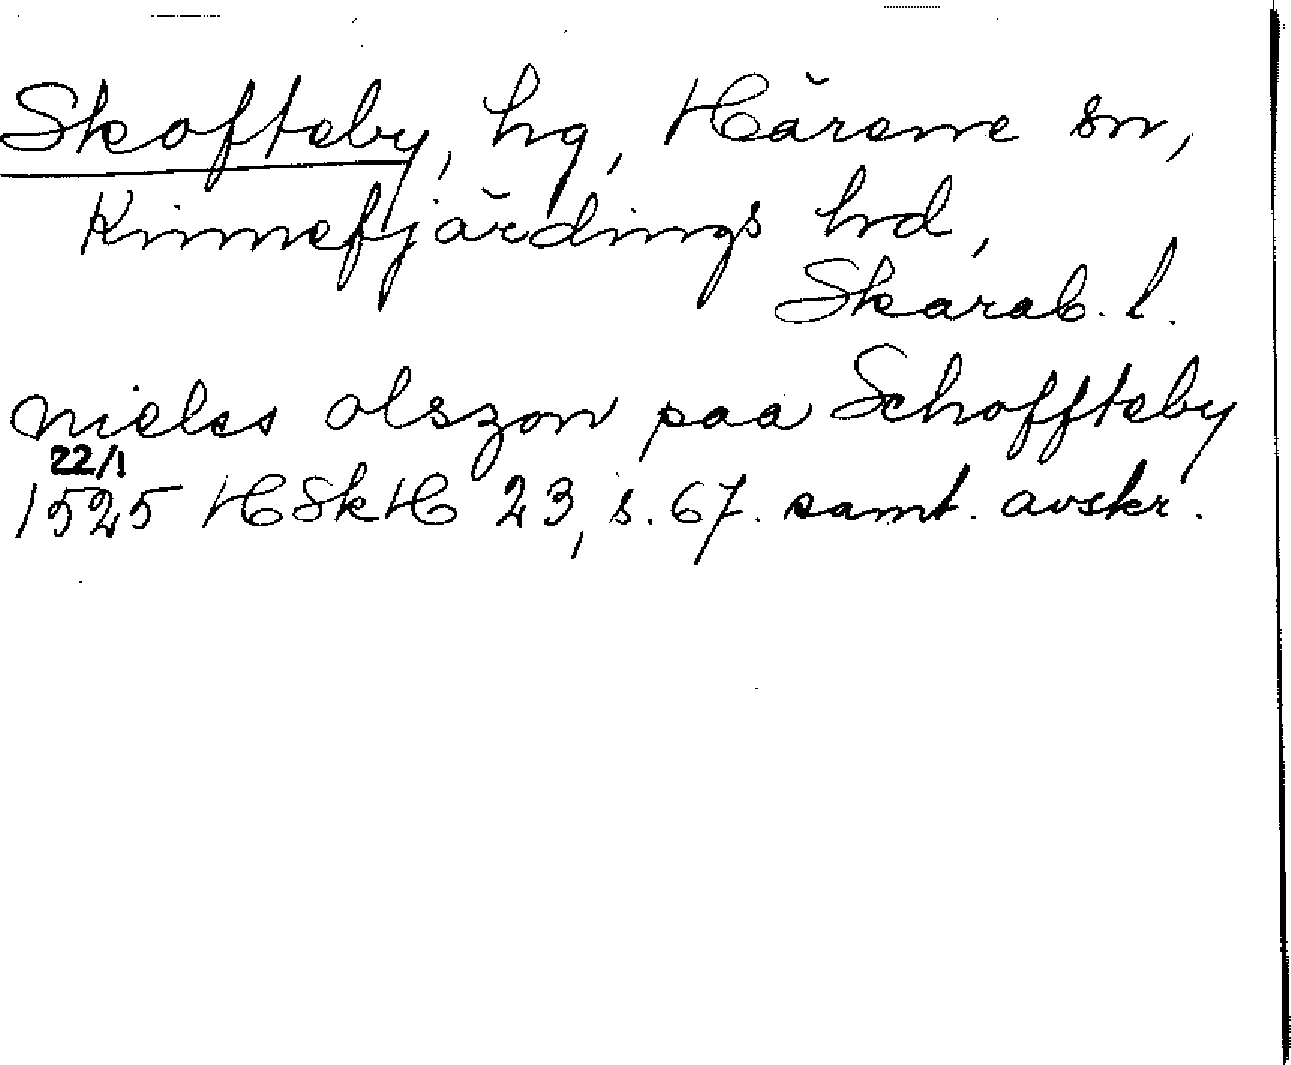 Skofteby, hg, Härene sn,
Kinnefjärdings hd,
Skarab. l.
nieles olszon paa Schoffteby
22/1
1525 HSkH 23, s. 67. samt. avskr.